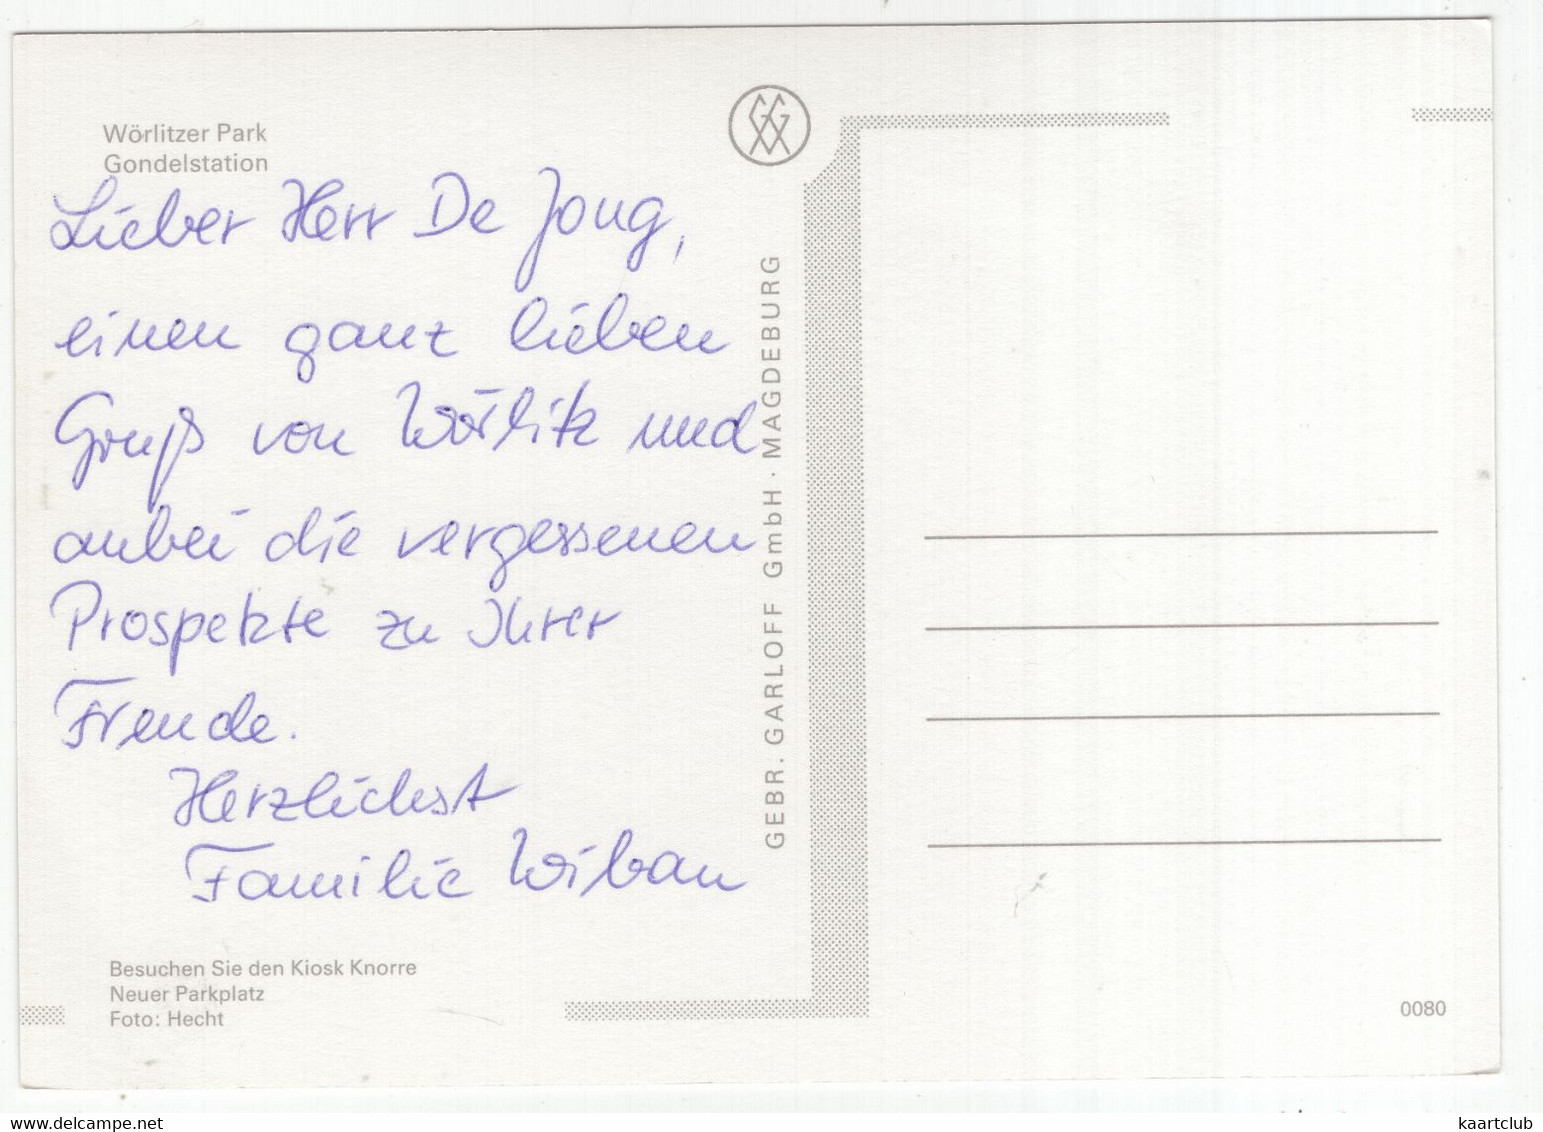 Wörlitzer Park
Gondelstation
Lieber Herr De Jong,
einen ganz lieben
Gruß von Wörlitz und
anbei die vergessenen
Prospekte zu Ihrer
Freude.
Herzlichst
Familie Wiban
Besuchen Sie den Kiosk Knorre
Neuer Parkplatz
Foto: Hecht
GEBR. GARLOFF GmbH · MAGDEBURG
0080
www.delcampe.net
kaartclub